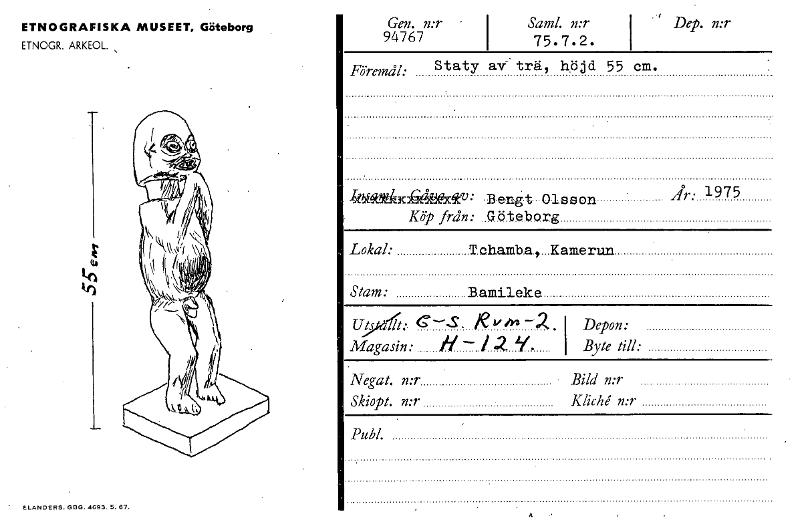 ETNOGRAFISKA MUSEET, Göteborg
ETNOGR. ARKEOL.
55 cm
ELANDERS. GBG. 4693. 5. 67.
Gen. n:r 94767
Saml. n:r 75.7.2.
Dep. n:r
Föremål: Staty av trä, höjd 55 cm.
Insaml. Gåva av: Bengt Olsson År: 1975
Köp från: Göteborg
Lokal: Tchamba, Kamerun
Stam: Bamileke
Utställt: G-S. Rum-2. Depon:
Magasin: H-124. Byte till:
Negat. n:r Bild n:r
Skiopt. n:r Kliché n:r
Publ.